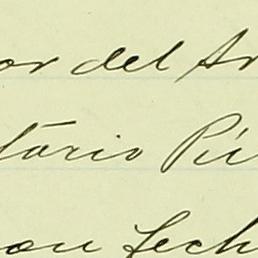 or del Ar
tario Pú
con fech